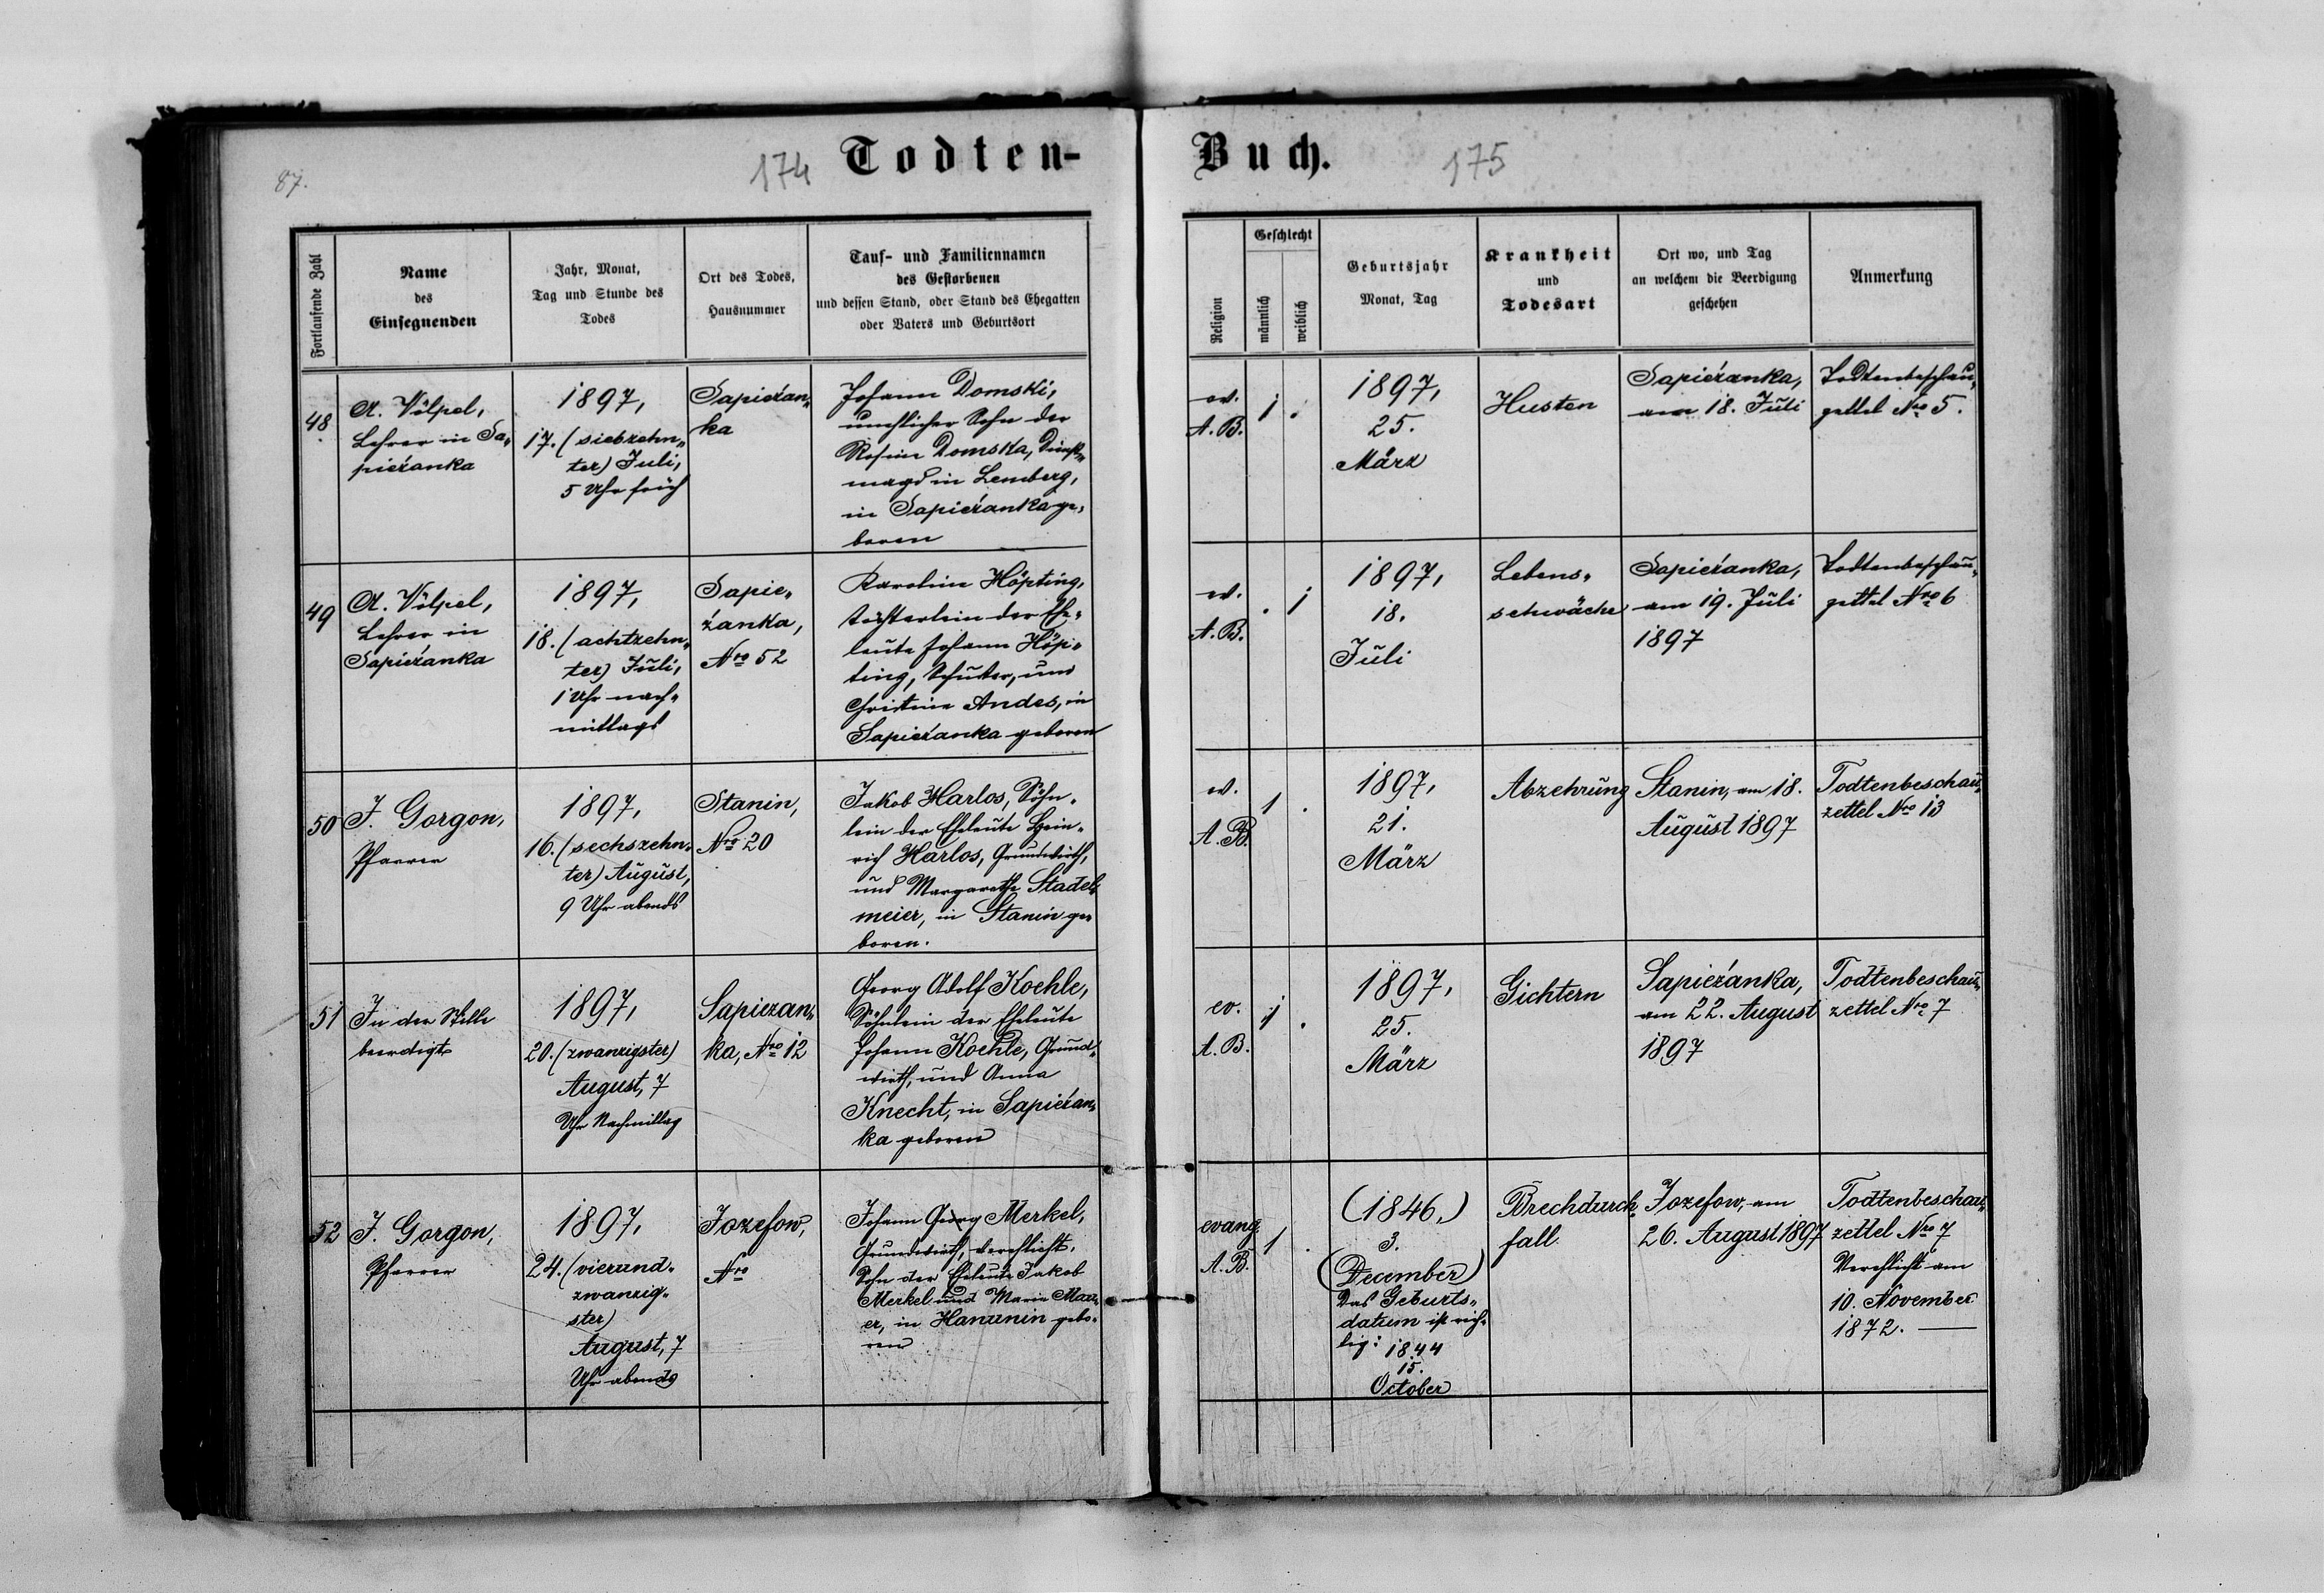 87.
174
Todten-
Buch.
175
Fortlaufende Zahl
Name
des
Einsegnenden
Jahr, Monat,
Tag und Stunde des
Todes
Ort des Todes,
Hausnummer
Tauf- und Familiennamen
des Gestorbenen
und dessen Stand, oder Stand des Ehegatten
oder Vaters und Geburtsort
Religion
Geschlecht
männlich
weiblich
Geburtsjahr
Monat, Tag
Krankheit
und
Todesart
Ort wo, und Tag
an welchem die Beerdigung
geschehen
Anmerkung
48.
A. Völpel,
Lehrer in Sa„
pieżanka
1897,
17. (siebzehn„
ter) Juli,
5 Uhr früh
Sapieżan„
ka
Johann Domski,
unehlicher Sohn der
Rosine Domska, Dienst„
magd in Lemberg,
in Sapieżanka ge„
boren
ev.
A. B.
1 .
1897,
25.
März
Husten
Sapieżanka,
am 18. Juli
Todtenbeschau„
zettel Nro 5.
49
A. Völpel,
Lehrer in
Sapieżanka
1897,
18. (achtzehn„
ter) Juli,
1 Uhr nach„
mittags
Sapie„
żanka,
Nro 52
Karoline Höpting,
Töchterlein der Ehe„
leute Johann Höp„
ting, Schuster, und
Christine Andes, in
Sapieżanka geboren
ev.
A. B.
. 1
1897,
18.
Juli
Lebens„
schwäche
Sapieżanka,
am 19. Juli
1897
Todtenbeschau„
zettel Nro 6
50
J. Gorgon,
Pfarrer
1897,
16. (sechszehn„
ter) August,
9 Uhr abends
Stanin,
Nro 20
Jakob Harlos, Söhn„
lein der Eheleute Hein„
rich Harlos, Grundwirth,
und Margarethe Stadel„
meier, in Stanin ge„
boren.
ev.
A. B.
1 .
1897,
21.
März
Abzehrung
Stanin, am 18.
August 1897
Todtenbeschau„
zettel Nro 13
51
In der Stille
beerdigt
1897,
20. (zwanzigster)
August, 7
Uhr Nachmittag
Sapiezan„
ka, Nro 12
Georg Adolf Koehle,
Söhnlein der Eheleute
Johann Koehle, Grund„
wirth, und Anna
Knecht, in Sapieżan„
ka geboren
ev.
A. B.
1 .
1897,
25.
März
Gichtern
Sapieżanka,
am 22. August
1897
Todtenbeschau„
zettel Nro 7
52
J. Gorgon,
Pfarrer
1897,
24. (vierund„
zwanzig„
ster)
August, 7
Uhr abends
Jozefow,
Nro
Johann Georg Merkel,
Grundwirth, verehlicht,
Sohn der Eheleute Jakob
Merkel und Marie
er, in Hanunin gebo„
ren
evang
A. B.
1 .
(1846,)
3.
(December)
Das Geburts„
datum ist rich„
tig: 1844
15.
October
Brechdurch„
fall
Jozefow, am
26. August 1897
Todtenbeschau„
zettel Nro 7
Verehlicht am
10. November
1872. —